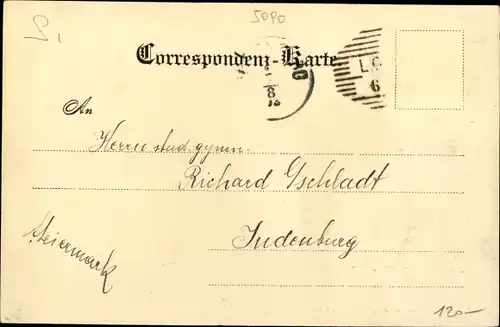 5090
Correspondenz-Karte.
8
L
6
An
Herrn stud. gymn.
Richard Gschladt
Judenburg
Steiermark
120-